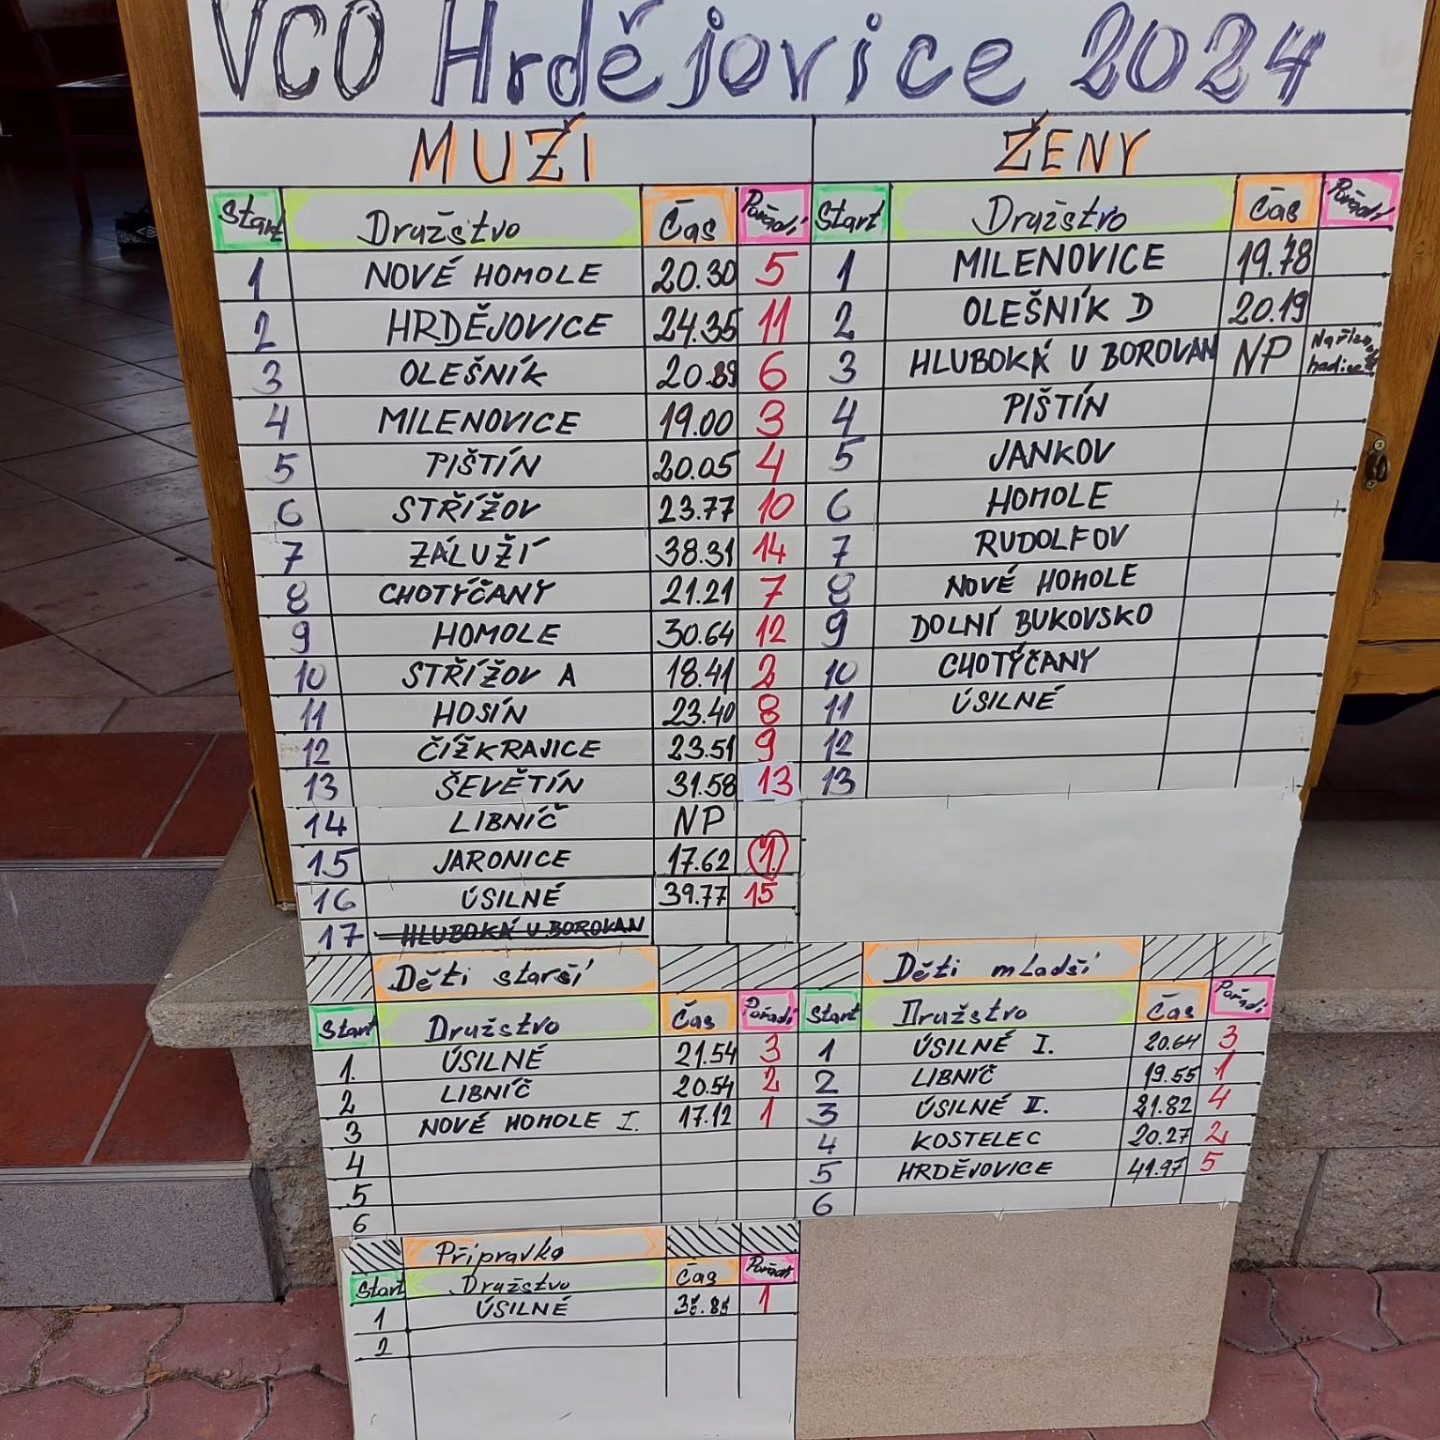 VCO Hrdějovice 2024
MUŽI
Start Družstvo Čas Pořadí
1 NOVÉ HOMOLE 20.30 5
2 HRDĚJOVICE 24.35 11
3 OLEŠNÍK 20.89 6
4 MILENOVICE 19.00 3
5 PIŠTÍN 20.05 4
6 STŘÍŽOV 23.77 10
7 ZÁLUŽÍ 38.31 14
8 CHOTÝČANY 21.21 7
9 HOMOLE 30.64 12
10 STŘÍŽOV A 18.41 2
11 HOSÍN 23.40 8
12 ČÍŽKRAJICE 23.51 9
13 ŠEVĚTÍN 31.58 13
14 LIBNÍČ NP
15 JARONICE 17.62 1.
16 ÚSILNÉ 39.77 15
17 HLUBOKÁ U BOROVAN
ŽENY
Start Družstvo Čas Pořadí
1 MILENOVICE 19.78
2 OLEŠNÍK D 20.19
3 HLUBOKÁ U BOROVAN NP
4 PIŠTÍN
5 JANKOV
6 HOMOLE
7 RUDOLFOV
8 NOVÉ HOMOLE
9 DOLNÍ BUKOVSKO
10 CHOTÝČANY
11 ÚSILNÉ
12
13
Děti starší
Start Družstvo Čas Pořadí
1. ÚSILNÉ 21.54 3
2 LIBNÍČ 20.54 2
3 NOVÉ HOMOLE I. 17.12 1
4
5
6
Děti mladší
Start Družstvo Čas Pořadí
1 ÚSILNÉ I. 20.64 3
2 LIBNÍČ 19.55 1
3 ÚSILNÉ II. 21.82 4
4 KOSTELEC 20.27 2
5 HRDĚJOVICE 41.97 5
6
Přípravka
Start Družstvo Čas Pořadí
1 ÚSILNÉ 1
2